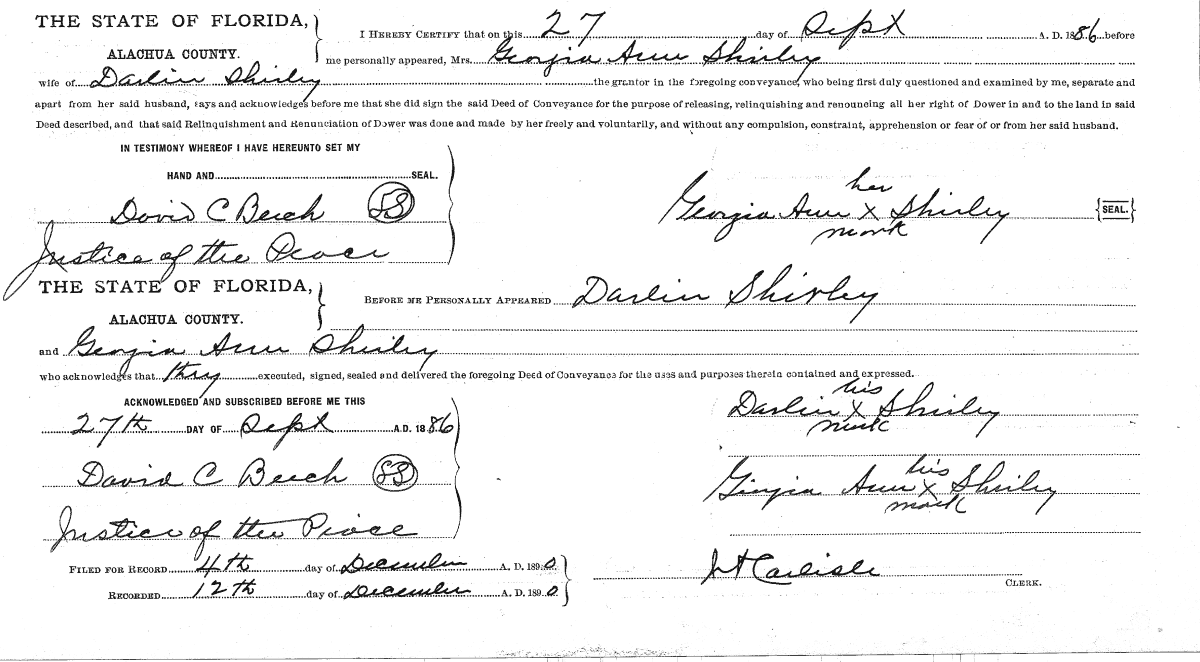 THE STATE OF FLORIDA,
ALACHUA COUNTY.
I HEREBY CERTIFY that on this 27 day of Sept A. D. 1886 before
me personally appeared, Mrs. Georgia Ann Shirley
wife of Darlin Shirley the grantor in the foregoing conveyance, who being first duly questioned and examined by me, separate and
apart from her said husband, says and acknowledges before me that she did sign the said Deed of Conveyance for the purpose of releasing, relinquishing and renouncing all her right of Dower in and to the land in said
Deed described, and that said Relinquishment and Renunciation of Dower was done and made by her freely and voluntarily, and without any compulsion, constraint, apprehension or fear of or from her said husband.
IN TESTIMONY WHEREOF I HAVE HEREUNTO SET MY
HAND AND SEAL.
David C Beech
Justice of the Peace
her
Georgia Ann X Shirley {SEAL.}
mark
THE STATE OF FLORIDA,
ALACHUA COUNTY.
BEFORE ME PERSONALLY APPEARED Darlin Shirley
and Georgia Ann Shirley
who acknowledges that they executed, signed, sealed and delivered the foregoing Deed of Conveyance for the uses and purposes therein contained and expressed.
ACKNOWLEDGED AND SUBSCRIBED BEFORE ME THIS
27th DAY OF Sept A.D. 1886
David C Beech
Justice of the Peace
his
Darlin X Shirley
mark
his
Giorgia Ann X Shirley
mark
FILED FOR RECORD 4th day of December A. D. 1890
RECORDED 12th day of December A. D. 1890
Carlisle
CLERK.